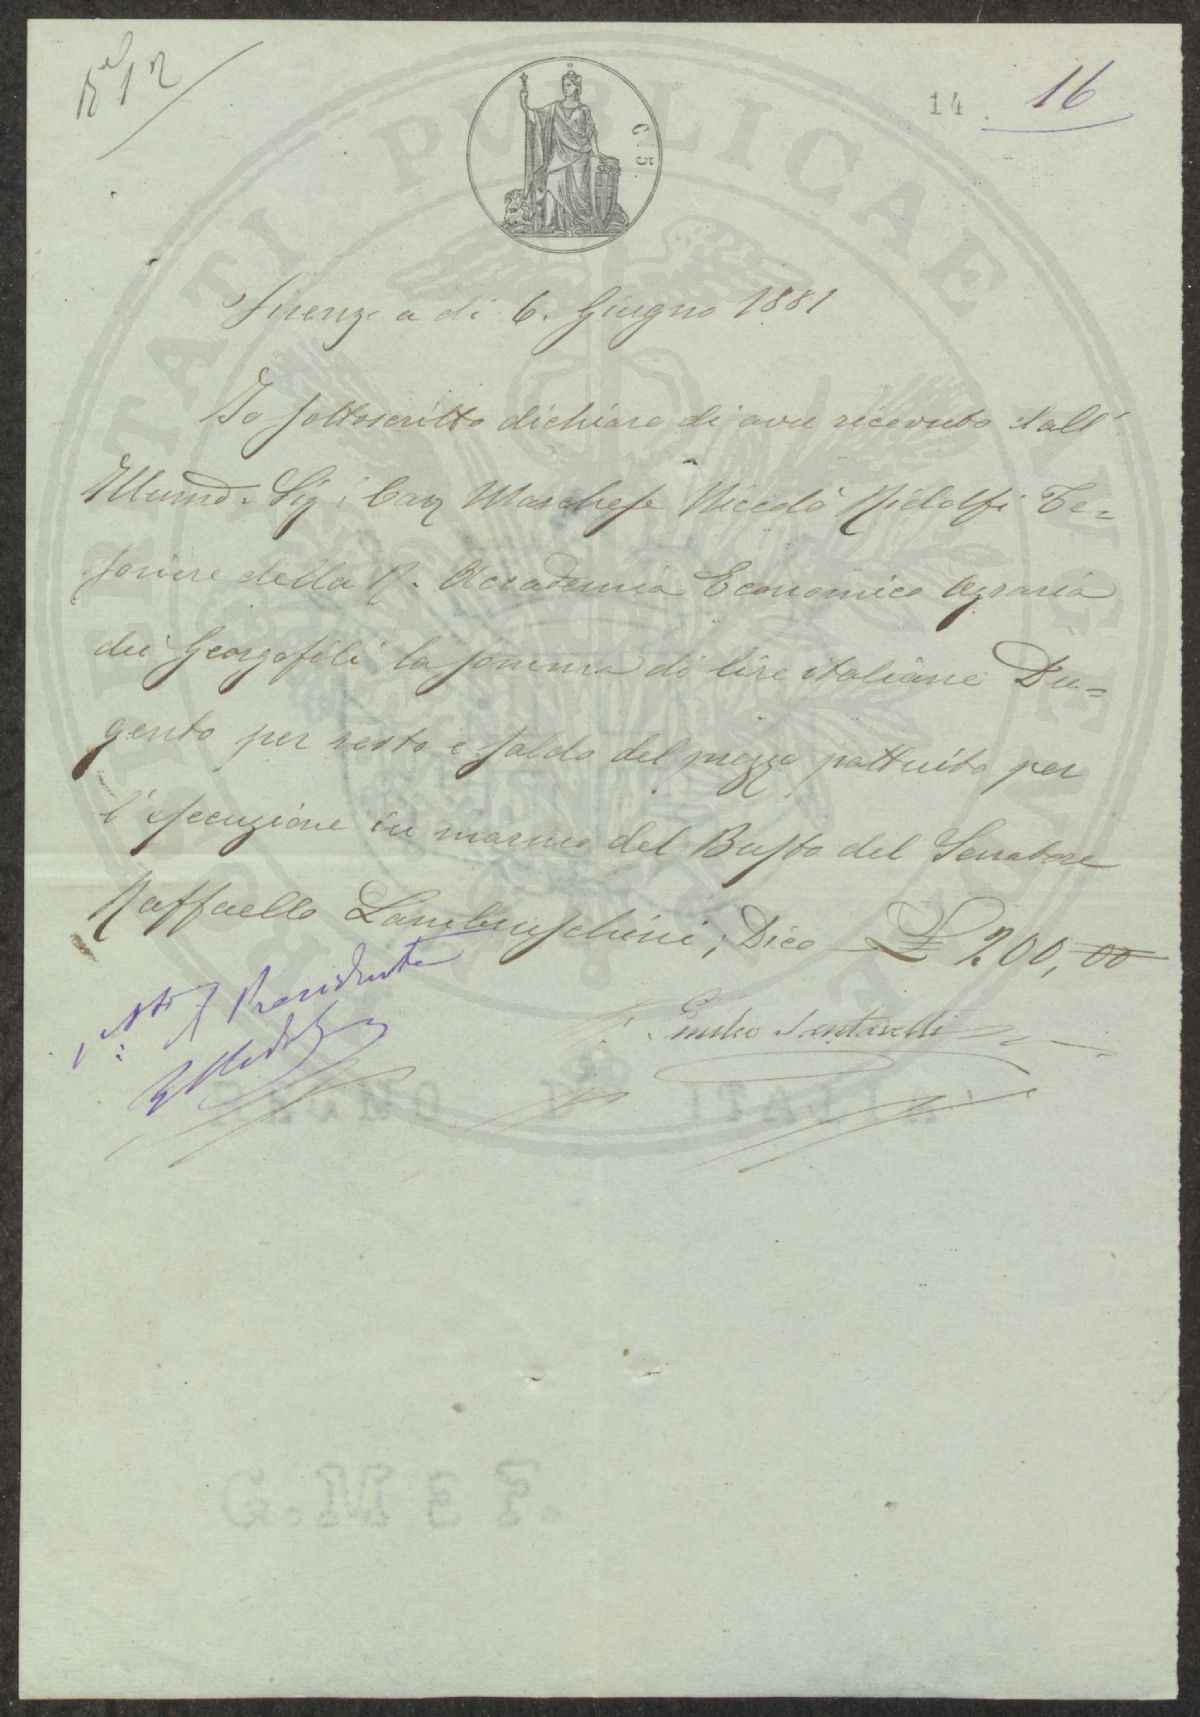 14 16
C. 5.
Firenze a dì 6. Giugno 1881
Io sottoscritto dichiaro di aver ricevuto dall'
Illumo. Sig: Cav Marchese Niccolò Ridolfi Te=
soriere della R. Accademia Economico Agraria
dei Georgofili la somma di lire italiane Du=
gento per resto e saldo del prezzo pattuito per
l'esecuzione in marmo del Busto del Senatore
Raffaello Lambruschini, Dico £ 200,00
Emilio Santarelli
Il Presidente
G. M e F.